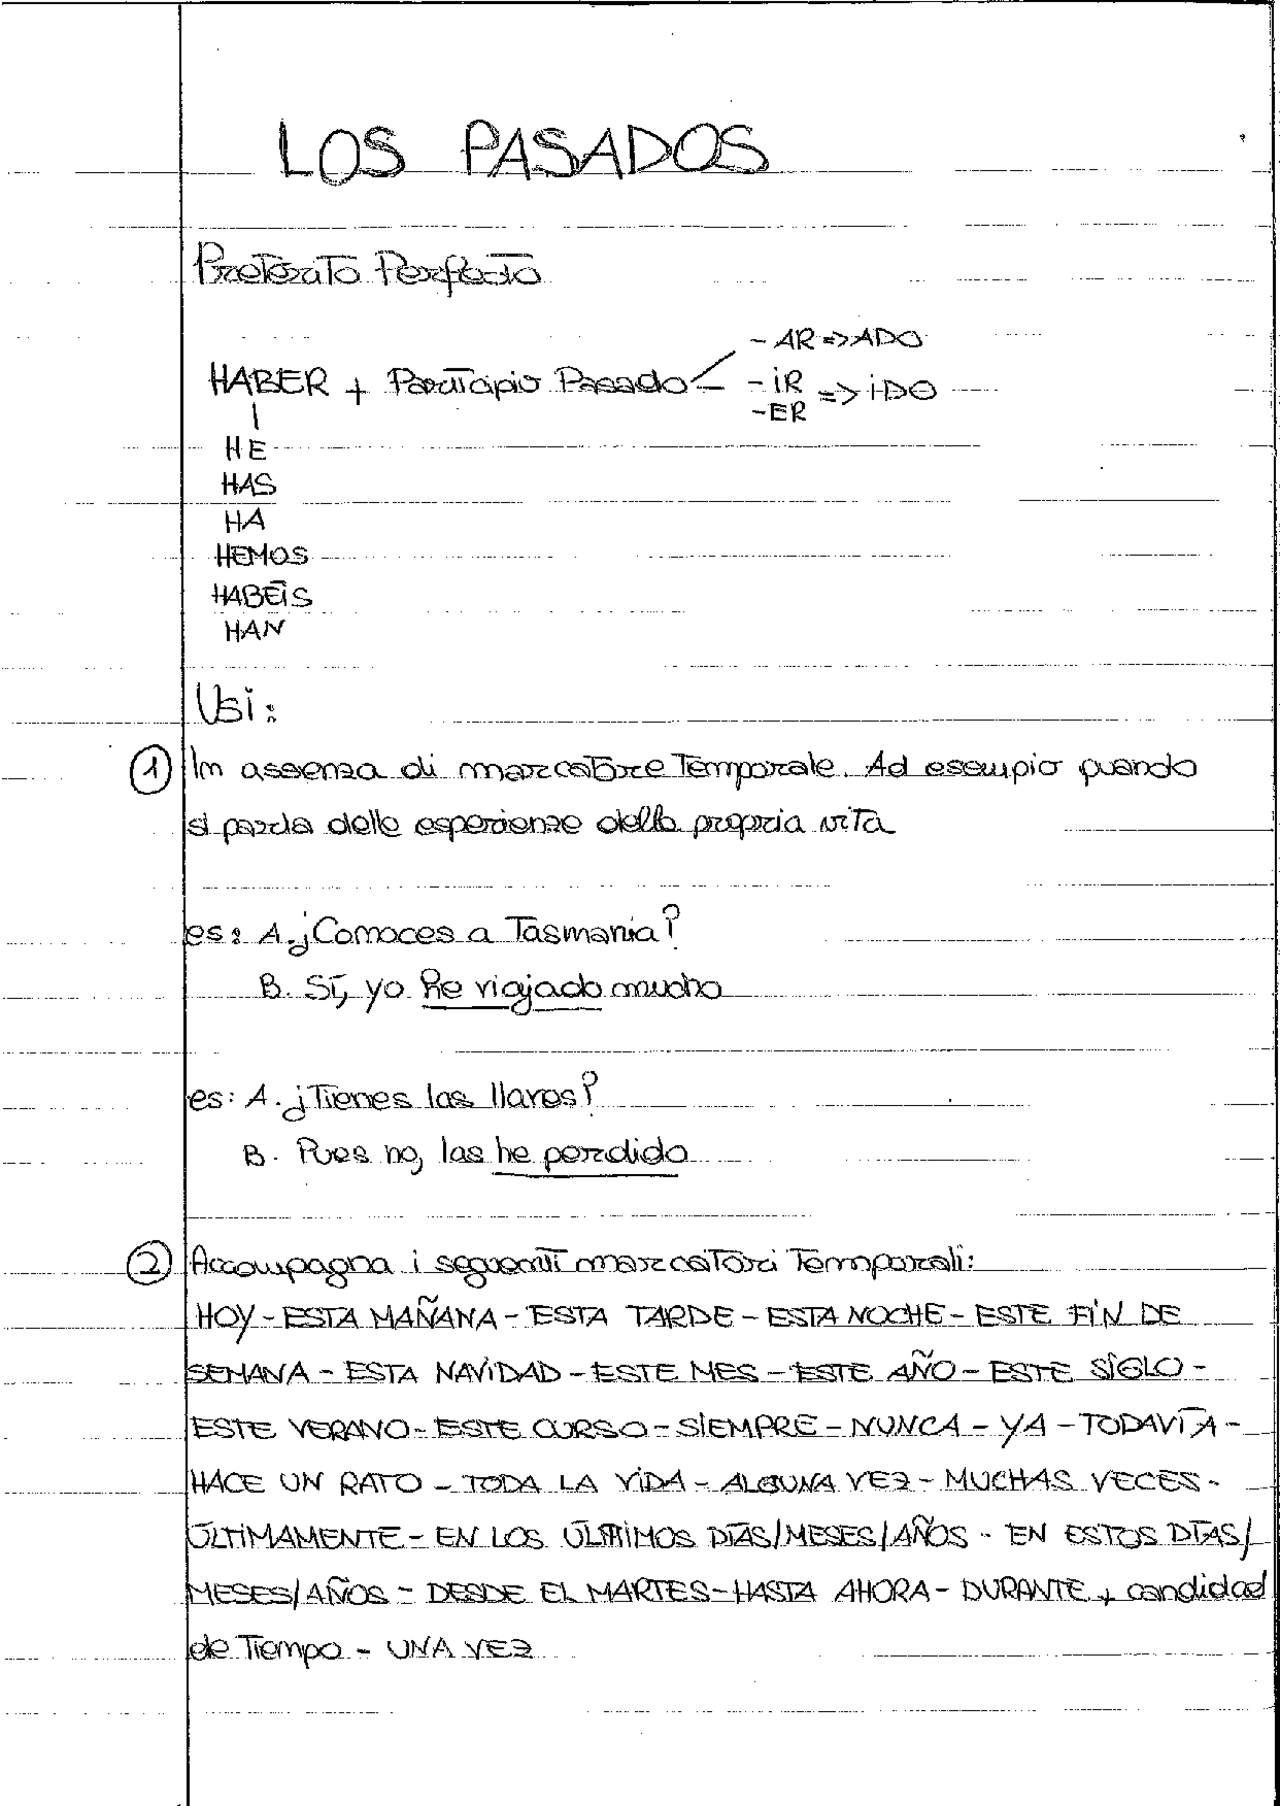 LOS PASADOS
Preterito Perfecto
- AR => ADO
HABER + Participio Pasado - IR => IDO
-ER
HE
HAS
HA
HEMOS
HABÉIS
HAN
Usi:
1 In assenza di marcatore temporale. Ad esempio quando
si parla delle esperienze della propria vita
es: A. ¿Conoces a Tasmania?
B. Sí, yo he viajado mucho
es: A. ¿Tienes las llaves?
B. Pues no, las he perdido
2 Accompagna i seguenti marcatori temporali:
HOY - ESTA MAÑANA - ESTA TARDE - ESTA NOCHE - ESTE FIN DE
SEMANA - ESTA NAVIDAD - ESTE MES - ESTE AÑO - ESTE SIGLO -
ESTE VERANO - ESTE CURSO - SIEMPRE - NUNCA - YA - TODAVÍA -
HACE UN RATO - TODA LA VIDA - ALGUNA VEZ - MUCHAS VECES -
ÚLTIMAMENTE - EN LOS ÚLTIMOS DÍAS/MESES/AÑOS - EN ESTOS DÍAS/
MESES/AÑOS - DESDE EL MARTES - HASTA AHORA - DURANTE + candidad
de tiempo - UNA VEZ